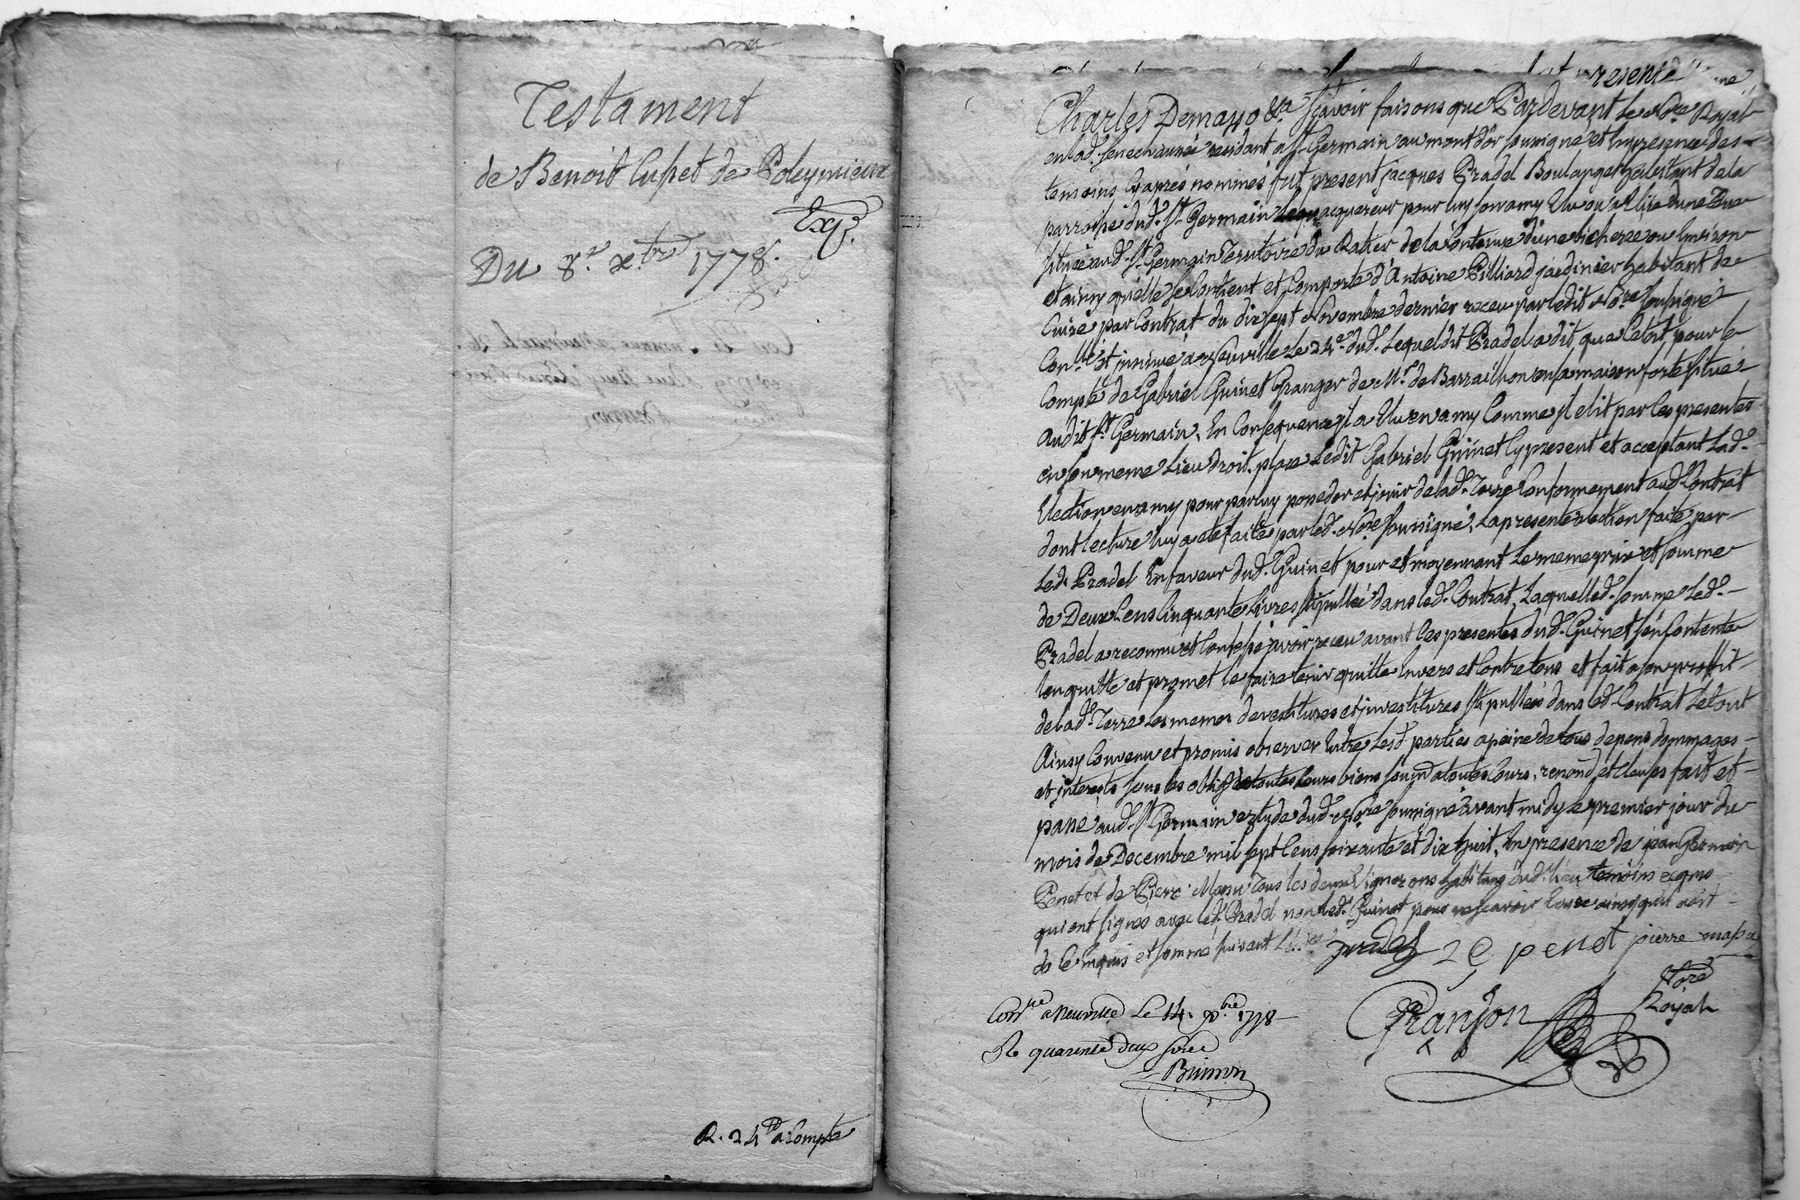 Testament
de Benoit Cupet de Poleymieux
Exp.
Du 8.e x.bre 1778.
R. 24 a compte
presente
Charles Demasso &a Sçavoir faisons que Pardevant le No.re Royal
en lad. senechaussée residant a St. Germain au mont d'or soussigné et en presence des
temoins cy aprés nommés fut present jacques Pradel Boulanger habitant de la
parroisse dud. St. Germain lequel acquereur pour luy son amy Elu ou a Elire d'une Terre
située aud. St. Germain Territoire du Ratier de la Contenue d'une bicherée ou Environ
et ainsy qu'elle se Contient et Comporte d'Antoine Billiard jardinier habitant de
Cuire par Contrat du dix sept Novembre dernier receu par ledit No.re soussigné
Con.llé et insinué a Neuville le 24.e dud. Lequel dit Pradel a dit que C'etoit pour le
Compte de Gabriel Guinet Granger de Mr. de Barraillon en sa maison forte située
audit St. Germain, En Consequence il a Elu en amy Comme il elit par les presentes
en son meme Lieu droit, place Ledit Gabriel Guinet Cy present et acceptant Lad.
Election en amy pour par luy posseder et jouir de lad. Terre Conformement aud. Contrat
dont lecture luy a eté faite par led. No.re soussigné, La presente election faite par
led. Pradel En faveur dud. Guinet pour et moyennant Le meme prix et somme
de Deux Cens Cinquante Livres stipullée dans led. Contrat, Laquelle d. somme Led.
Pradel a reconnu et Confessé avoir receu avant Ces presentes dud. Guinet s'en Contente
l'en quitte et promet le faire tenir quitte Envers et Contre tous et fait a son proffit
de lad. Terre Les memes devestitures et investitures stipullées dans led. Contrat Le tout
Ainsy Convenu et promis observer Entre Les d. parties a peine de tous depens dommages
et interets sous les oblig. de toutes leurs biens soumd. a toutes Cours, renond. et clauses fait et
passé aud. St. Germain etude dud. No.re soussigné avant midy Le premier jour du
mois de Decembre mil sept Cens soixante et dix huit, En presence de jean Germain
Penet et de Pierre Mapu tous les deux Vignerons habitans dud. lieu temoins requis
qui ont signé avec led. Pradel non led. Guinet pour ne sçavoir Ecrire ainsy qu'il a dit
de ce enquis et sommé suivant
pradel j e penet pierre mapu
Granjon No.re Royal
Con.llé a Neuville Le 14. x.bre 1778
R quarente deux sols
Buisson